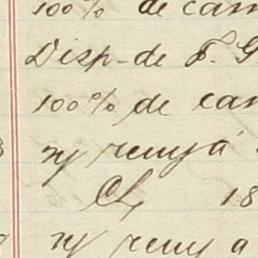 100% de cam
Disp. de F. G
100% de cam
n/ remy á
18
n/ remy a